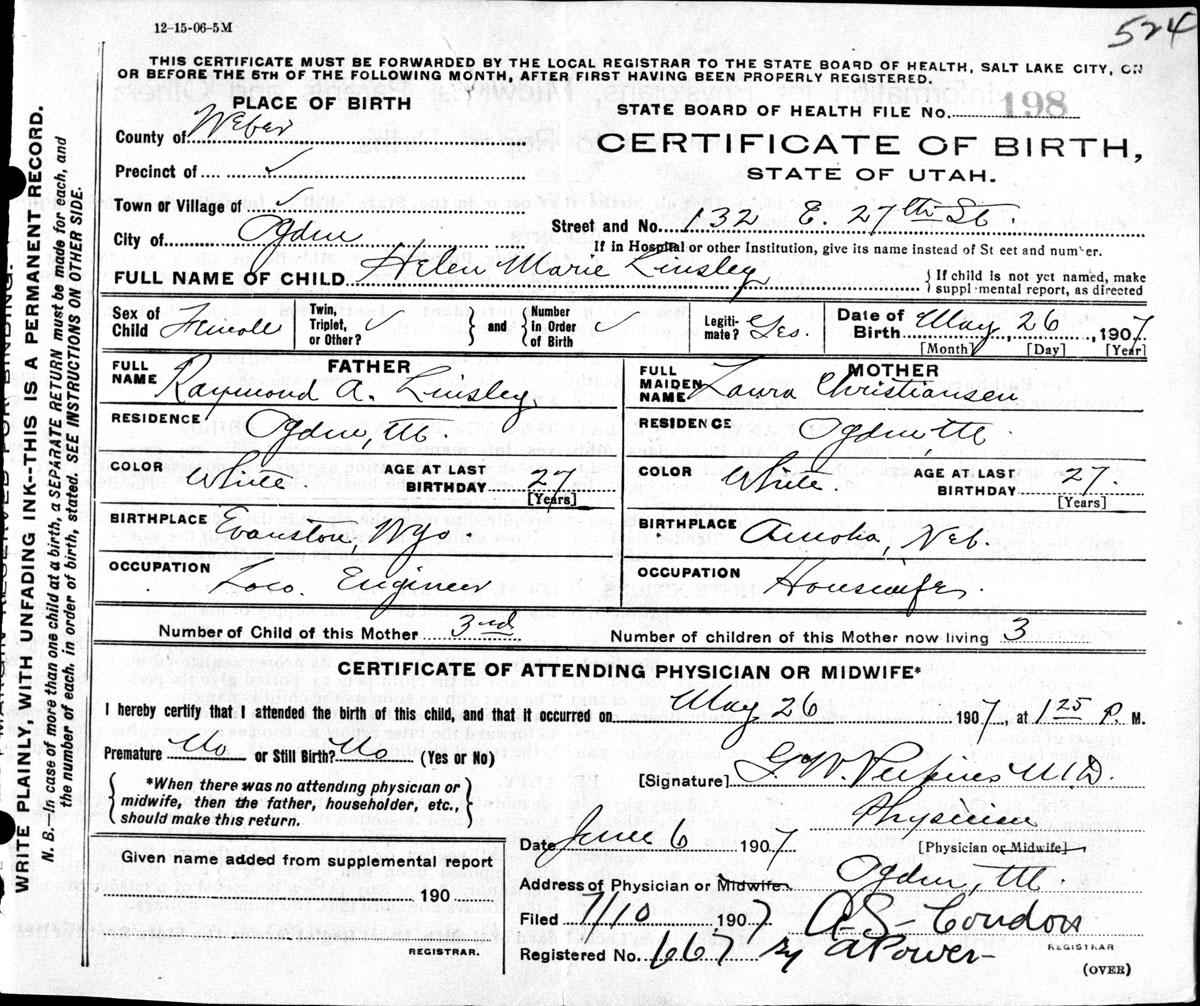 12-15-06-5M
524
THIS CERTIFICATE MUST BE FORWARDED BY THE LOCAL REGISTRAR TO THE STATE BOARD OF HEALTH, SALT LAKE CITY, ON
OR BEFORE THE 5TH OF THE FOLLOWING MONTH, AFTER FIRST HAVING BEEN PROPERLY REGISTERED.
PLACE OF BIRTH
STATE BOARD OF HEALTH FILE NO. 198
County of Weber
CERTIFICATE OF BIRTH,
STATE OF UTAH.
Precinct of ✓
Town or Village of ✓
City of Ogden
Street and No. 132 E. 27th St.
If in Hospital or other Institution, give its name instead of St eet and number.
FULL NAME OF CHILD Helen Marie Linsley
If child is not yet named, make
suppl mental report, as directed
Sex of Child Female
Twin, Triplet, or Other? ✓
and Number in Order of Birth ✓
Legiti-mate? Yes.
Date of Birth May 26, 1907
[Month] [Day] [Year]
FATHER
FULL NAME Raymond A. Linsley
RESIDENCE Ogden, Ut.
COLOR White
AGE AT LAST BIRTHDAY 27
[Years]
BIRTHPLACE Evanston, Wyo.
OCCUPATION Loco. Engineer
MOTHER
FULL MAIDEN NAME Laura Christiansen
RESIDENCE Ogden, Ut.
COLOR White.
AGE AT LAST BIRTHDAY 27.
[Years]
BIRTHPLACE Neb.
OCCUPATION Housewife.
Number of Child of this Mother 3rd
Number of children of this Mother now living 3
CERTIFICATE OF ATTENDING PHYSICIAN OR MIDWIFE*
I hereby certify that I attended the birth of this child, and that it occurred on May 26 1907, at 1 25 P. M.
Premature No or Still Birth? No (Yes or No)
[Signature] G. W. Perkins M.D.
*When there was no attending physician or
midwife, then the father, householder, etc.,
should make this return.
Physician
[Physician or Midwife]
Date June 6 1907
Given name added from supplemental report
190
REGISTRAR.
Address of Physician or Midwife Ogden, Ut.
Filed 7/10 1907 A-S- Condon
REGISTRAR
Registered No. 167 By A Power
(OVER)
WRITE PLAINLY, WITH UNFADING INK-THIS IS A PERMANENT RECORD.
N. B.-In case of more than one child at a birth, a SEPARATE RETURN must be made for each, and
the number of each, in order of birth, stated. SEE INSTRUCTIONS ON OTHER SIDE.